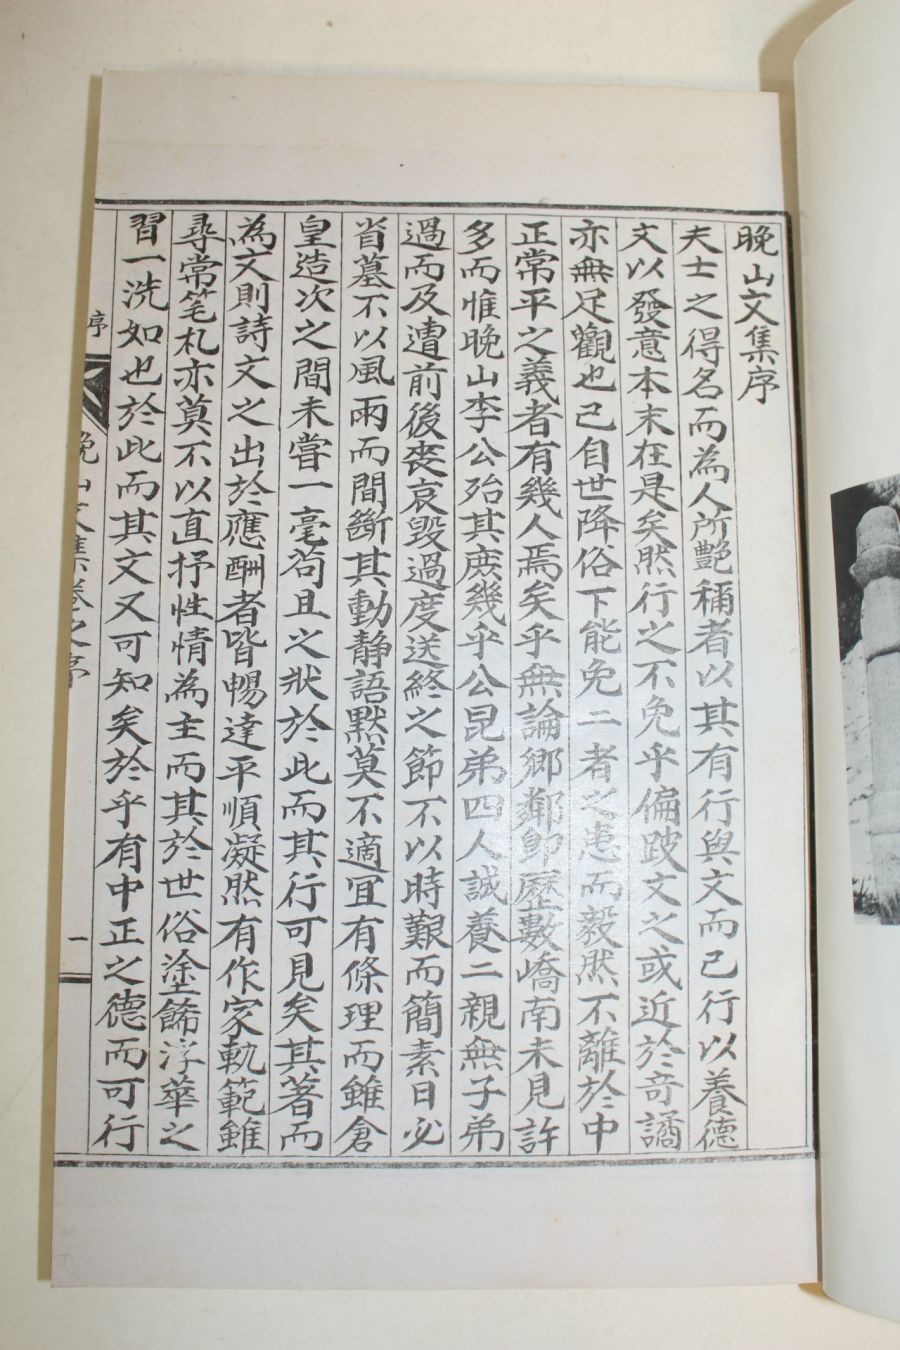 晩山文集序
夫士之得名而為人所艶稱者以其有行與文而已行以養德
文以發意本末在是矣然行之不免乎偏跛文之或近於奇譎
亦無足觀也已自世降俗下能免二者之患而毅然不離於中
正常平之義者有幾人焉矣乎無論鄉鄰即歷數嶠南未見許
多而惟晩山李公殆其庶幾乎公昆弟四人誠養二親無子弟
過而及遭前後喪哀毀過度送終之節不以時艱而簡素日必
省墓不以風雨而間斷其動静語默莫不適宜有條理而雖倉
皇造次之間未嘗一毫苟且之狀於此而其行可見矣其著而
為文則詩文之出於應酬者皆暢達平順凝然有作家軌範雖
尋常笔札亦莫不以直抒性情為主而其於世俗塗餙浮華之
習一洗如也於此而其文又可知矣於乎有中正之德而可行
序
晩山文集卷之序
一